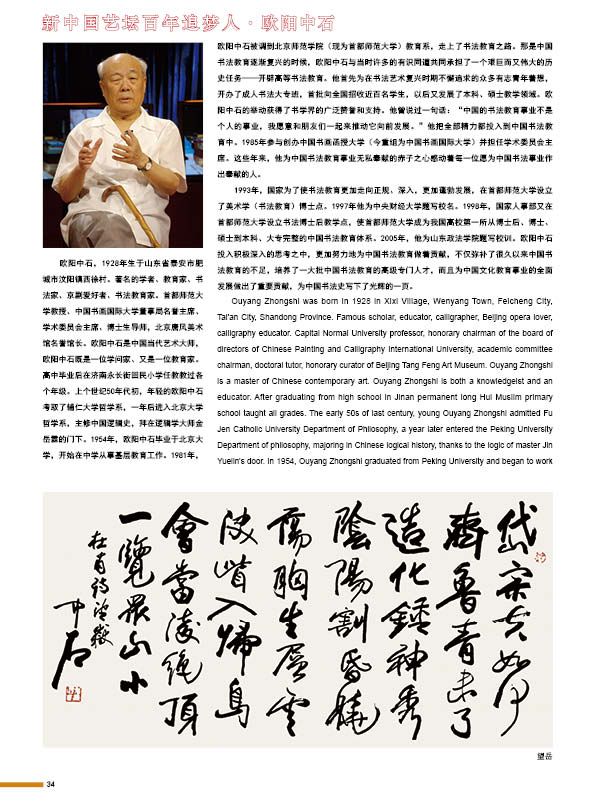 新中国艺坛百年追梦人·欧阳中石
欧阳中石，1928年生于山东省泰安市肥
城市汶阳镇西徐村。著名的学者、教育家、书
法家、京剧爱好者、书法教育家。首都师范大
学教授、中国书画国际大学董事局名誉主席、
学术委员会主席、博士生导师，北京唐风美术
馆名誉馆长。欧阳中石是中国当代艺术大师，
欧阳中石既是一位学问家、又是一位教育家。
高中毕业后在济南永长街回民小学任教教过各
个年级。上个世纪50年代初，年轻的欧阳中石
考取了辅仁大学哲学系，一年后进入北京大学
哲学系，主修中国逻辑史，拜在逻辑学大师金
岳霖的门下。1954年，欧阳中石毕业于北京大
学，开始在中学从事基层教育工作。1981年，
欧阳中石被调到北京师范学院（现为首都师范大学）教育系，走上了书法教育之路。那是中国
书法教育逐渐复兴的时候，欧阳中石与当时许多的有识同道共同承担了一个艰巨而又伟大的历
史任务——开辟高等书法教育。他首先为在书法艺术复兴时期不懈追求的众多有志青年着想，
开办了成人书法大专班，首批向全国招收近百名学生，以后又发展了本科、硕士教学领域。欧
阳中石的举动获得了书学界的广泛赞誉和支持。他曾说过一句话：“中国的书法教育事业不是
个人的事业，我愿意和朋友们一起来推动它向前发展。”他把全部精力都投入到中国书法教
育中。1985年参与创办中国书画函授大学（今重组为中国书画国际大学）并担任学术委员会主
席。这些年来，他为中国书法教育事业无私奉献的赤子之心感动着每一位愿为中国书法事业作
出奉献的人。
1993年，国家为了使书法教育更加走向正规、深入，更加蓬勃发展，在首都师范大学设立
了美术学（书法教育）博士点。1997年他为中央财经大学题写校名。1998年，国家人事部又在
首都师范大学设立书法博士后教学点，使首都师范大学成为我国高校第一所从博士后、博士、
硕士到本科、大专完整的中国书法教育体系。2005年，他为山东政法学院题写校训。欧阳中石
投入积极深入的思考之中，更加努力地为中国书法教育做着贡献，不仅弥补了很久以来中国书
法教育的不足，培养了一大批中国书法教育的高级专门人才，而且为中国文化教育事业的全面
发展做出了重要贡献，为中国书法史写下了光辉的一页。
Ouyang Zhongshi was born in 1928 in Xixi Village, Wenyang Town, Feicheng City,
Tai'an City, Shandong Province. Famous scholar, educator, calligrapher, Beijing opera lover,
calligraphy educator. Capital Normal University professor, honorary chairman of the board of
directors of Chinese Painting and Calligraphy International University, academic committee
chairman, doctoral tutor, honorary curator of Beijing Tang Feng Art Museum. Ouyang Zhongshi
is a master of Chinese contemporary art. Ouyang Zhongshi is both a knowledgeist and an
educator. After graduating from high school in Jinan permanent long Hui Muslim primary
school taught all grades. The early 50s of last century, young Ouyang Zhongshi admitted Fu
Jen Catholic University Department of Philosophy, a year later entered the Peking University
Department of philosophy, majoring in Chinese logical history, thanks to the logic of master Jin
Yuelin's door. In 1954, Ouyang Zhongshi graduated from Peking University and began to work
岱宗夫如何
齊魯青未了
造化鍾神秀
陰陽割昏曉
蕩胸生層雲
決眥入歸鳥
會當凌絕頂
一覽眾山小
杜甫詩望嶽
中石
望岳
34